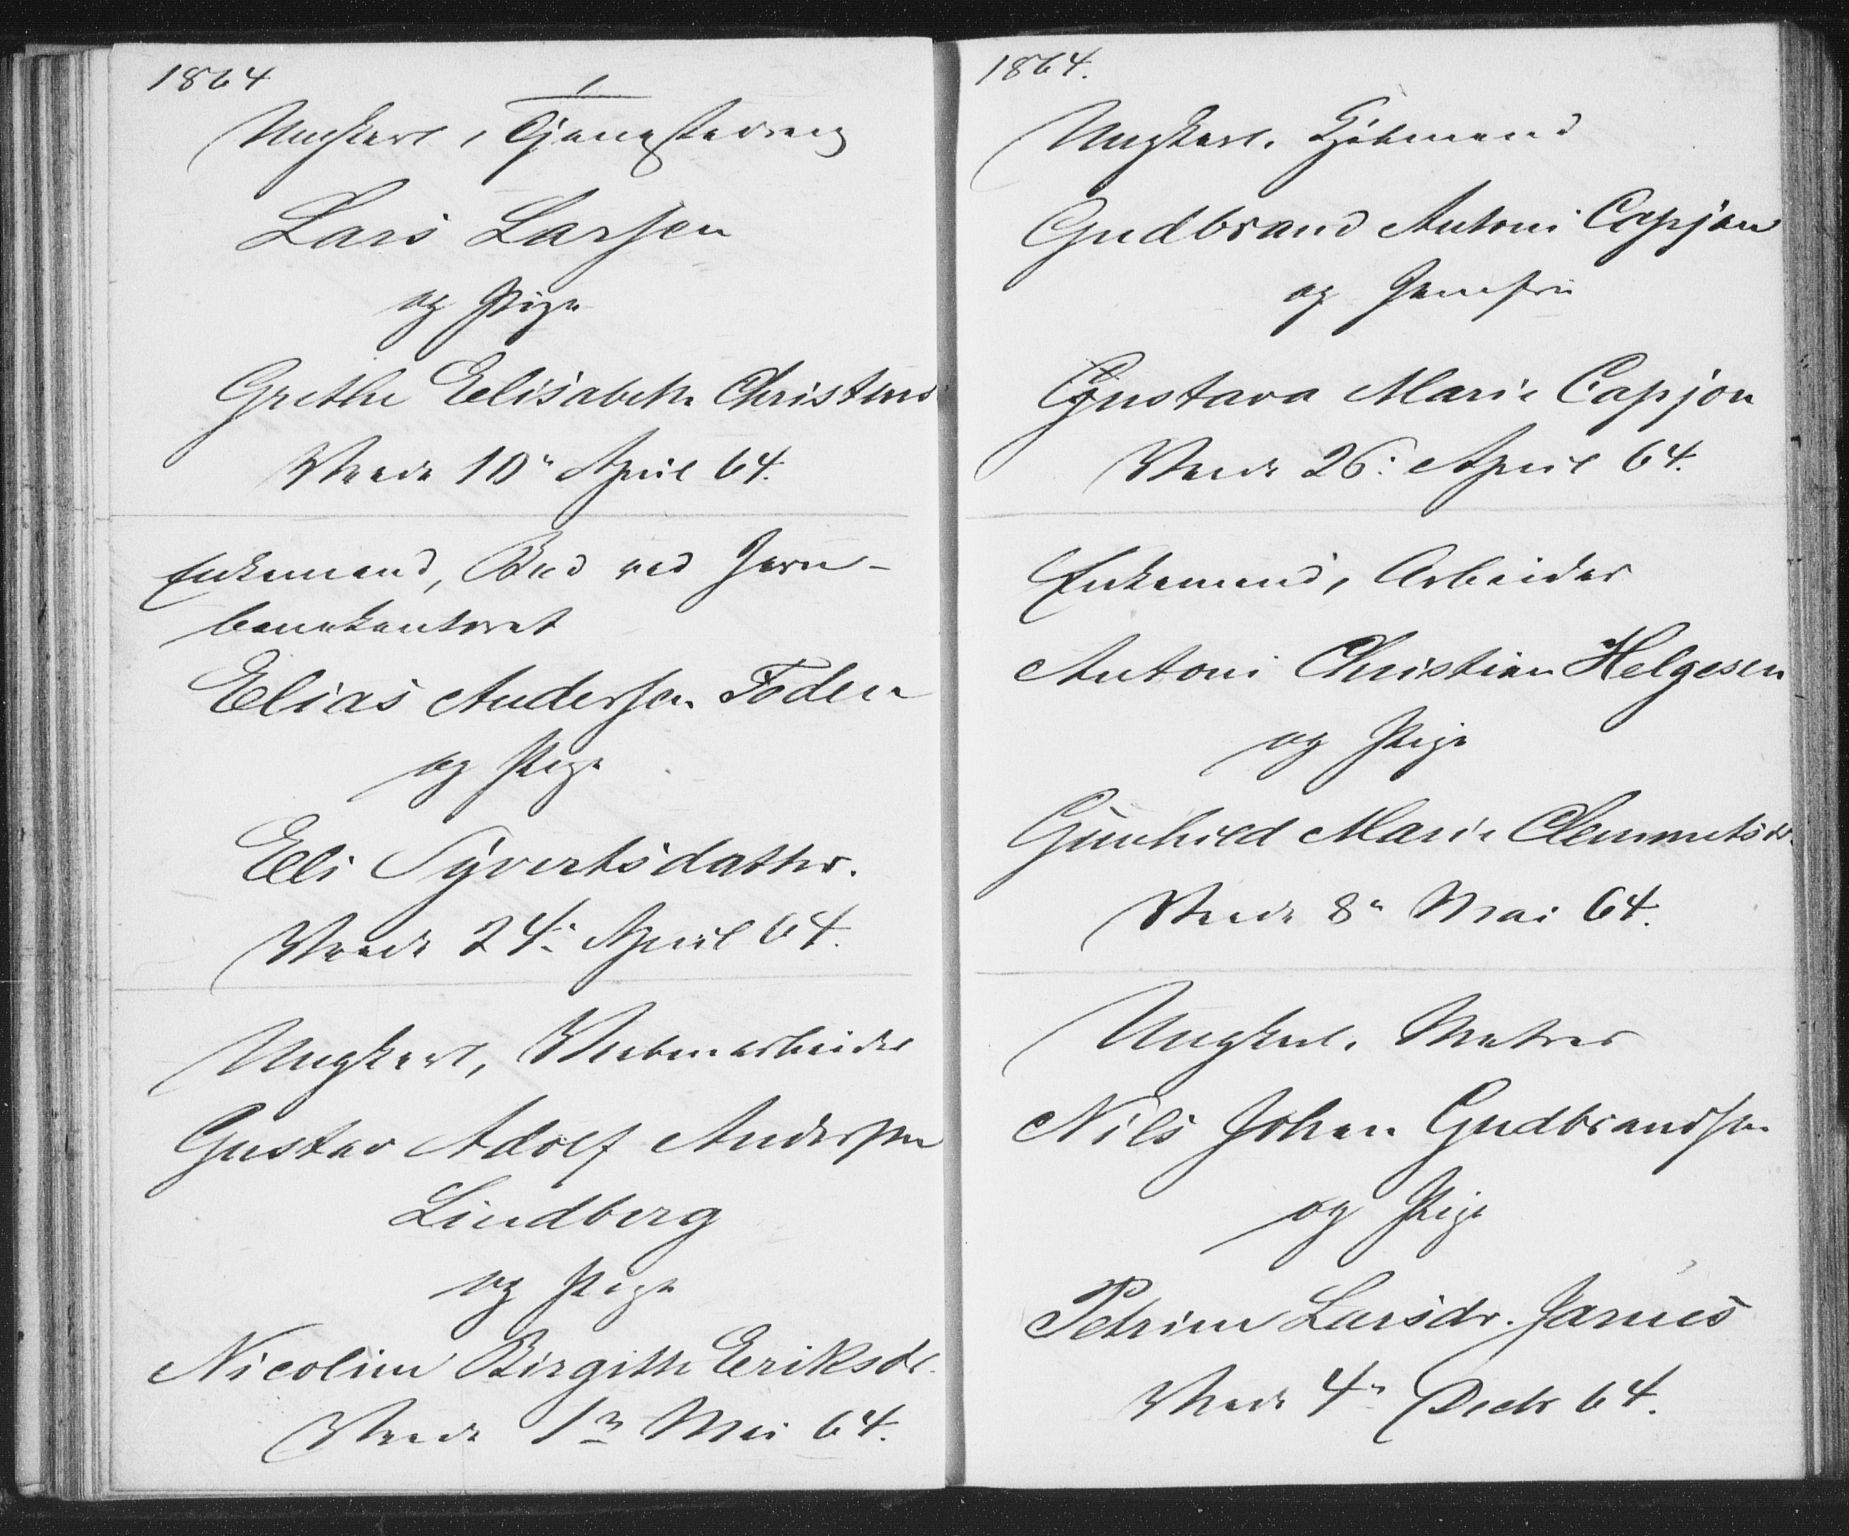 1864
Ungkarl, Tjenestedreng
Lars Larsen
og Pige
Grethe Elisabeth Christensd
Viede 10de April 64.
Enkemand, Bud ved Jern-
banekontoret
Elias Andersen Foden
og Pige
Eli Syvertsdatter.
Viede 24de April 64.
Ungkarl,
Gustav Adolf Andersen
Lindberg
og Pige
Nicoline Birgitte Eriksdr.
Viede 1ste Mai 64.
1864.
Ungkarl. Kjøbmand
Gudbrand Antoni Capjon
og Jomfru
Gustava Marie Capjon
Viede 26. April 64.
Enkemand, Arbeider
Antoni Christian Helgesen
og Pige
Gunhild Marie Clemmetsdr.
Viede 8de Mai 64.
Ungkarl. Matros
Nils Johan Gudbrandsen
og Pige
Petrine Larsdr. Jarnes
Viede 4de Decbr 64.